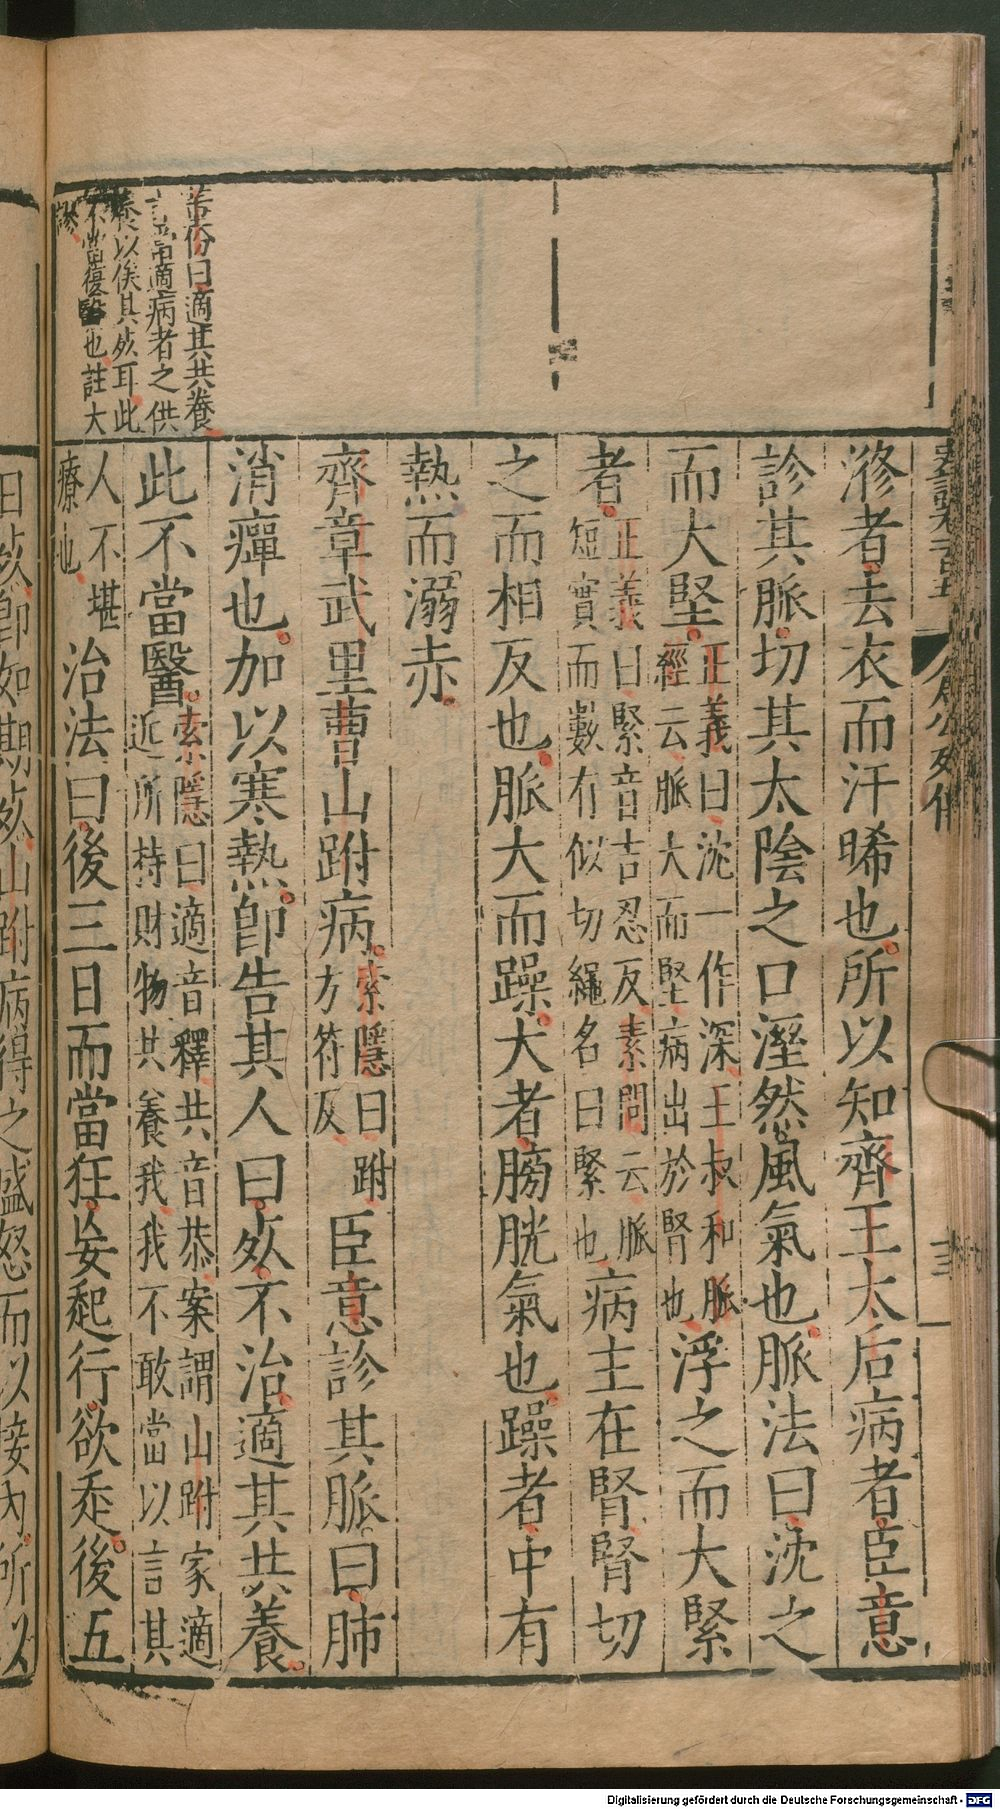 滲者去衣而汗晞也所以知齊王太后病者臣意
診其脈切其太陰之口溼然風氣也脈法曰沈之
而大堅
正義曰沈一作深王叔和脈
經云脈大而堅病出於腎也
浮之而大緊
者
正義曰緊音吉忍反素問云脈
短實而數有似切繩名曰緊也
病主在腎腎切
之而相反也脈大而躁大者膀胱氣也躁者中有
熱而溺赤
齊章武里曹山跗病
索隱曰跗
方符反
臣意診其脈曰肺
消癉也加以寒熱卽告其人曰死不治適其共養
此不當醫
索隱曰適音釋共音恭案謂山跗家適
近所持財物共養我我不敢當以言其
人不堪
療也
治法曰後三日而當狂妄起行欲走後五
曰適其共養
適病者之供
養以俟其死耳此
不當復醫也註大
謬
日死卽如期死山跗病得之盛怒而以接內所以
Digitalisierung gefördert durch die Deutsche Forschungsgemeinschaft - DFG